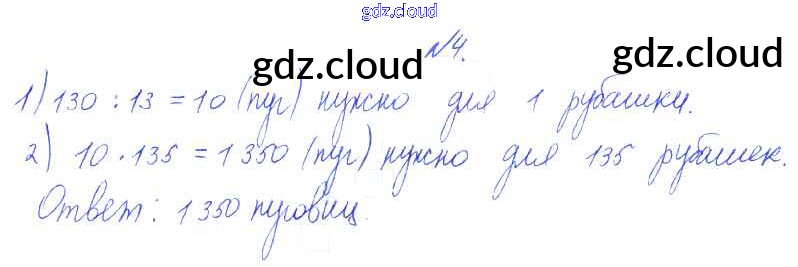 gdz.cloud
№4.
gdz.cloud
gdz.cloud
1) 130 : 13 = 10 (пуг) нужно для 1 рубашки.
2) 10 · 135 = 1350 (пуг) нужно для 135 рубашек.
Ответ: 1350 пуговиц.